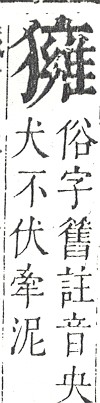 㺕
俗字舊註音央
犬不伏牽泥